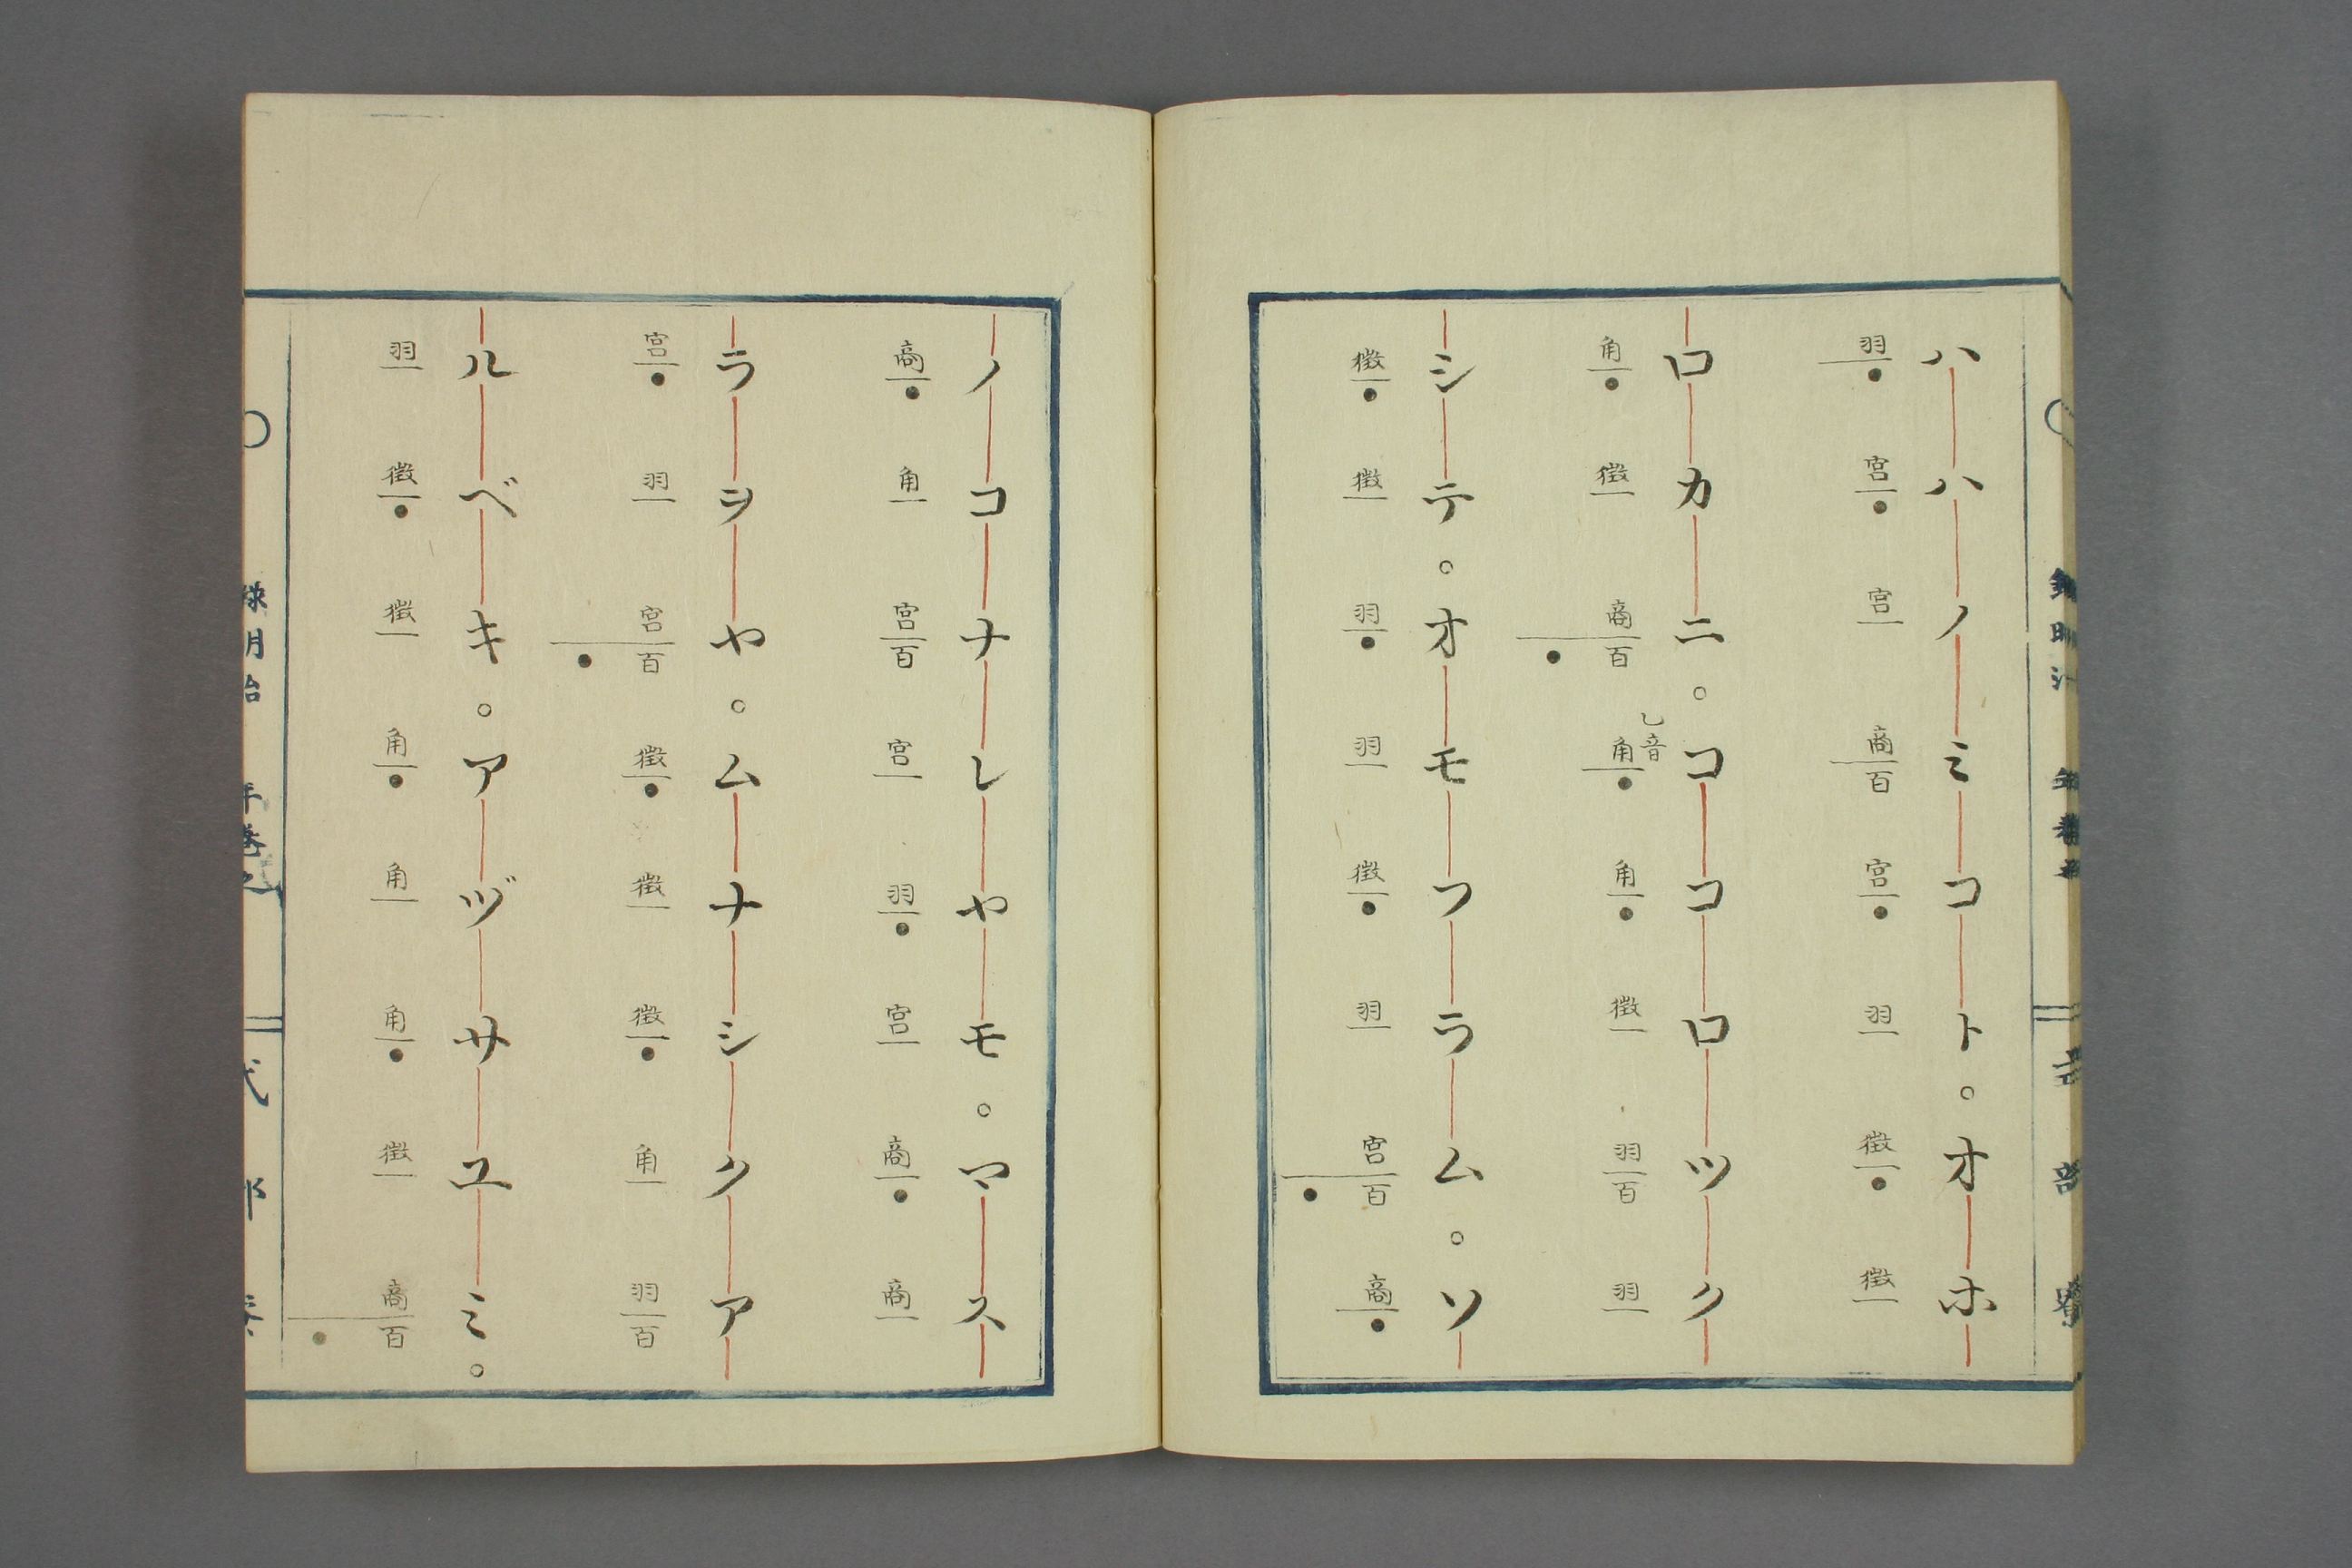 ハハノミコト。オホ
羽宮宮商百宮羽徴徴
ロカニ。ココロツク
角徴商百乙音角角徴羽百羽
シテ。オモフラム。ソ
徴徴羽羽徴羽宮百商
ノコナレヤモ。マス
商角宮百宮羽宮商商
ラヲヤ。ムナシクア
宮羽宮百徴徴徴角羽百
ルベキ。アヅサユミ。
羽徴徴角角角徴商百